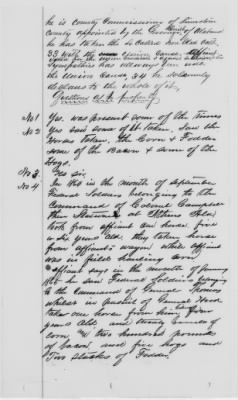 he is County Commissioning of Limestone
County appointed by the Governor of Alabama
he has taken the so called
33
Sympathies was always on side
the Union Cause. 34 he solemnly
declares to the whole of it.
Questions as to property
No 1 Yes. was present some of the times
No 2 Yes said some of it taken, saw the
Horse taken, the Corn & Fodder
some of the Bacon & some of the
Hogs.
No 3 No sir.
No 4 In 1862 in the month of September
Federal Soldiers belonging to the
Command of Colonel Campbell
then Stationed at Athens Ala
took from affiant one horse five
or six years old, they taken
from affiant's wagon while affiant
was in field hauling corn
affiant says in the month of January
he saw Federal Soldiers belonging
to the Command of General
whilst in pursuit of General Hood
take one horse from him four
years old and twenty barrels of
corn & two hundred pounds
of bacon, and five hogs and
Two stacks of Fodder